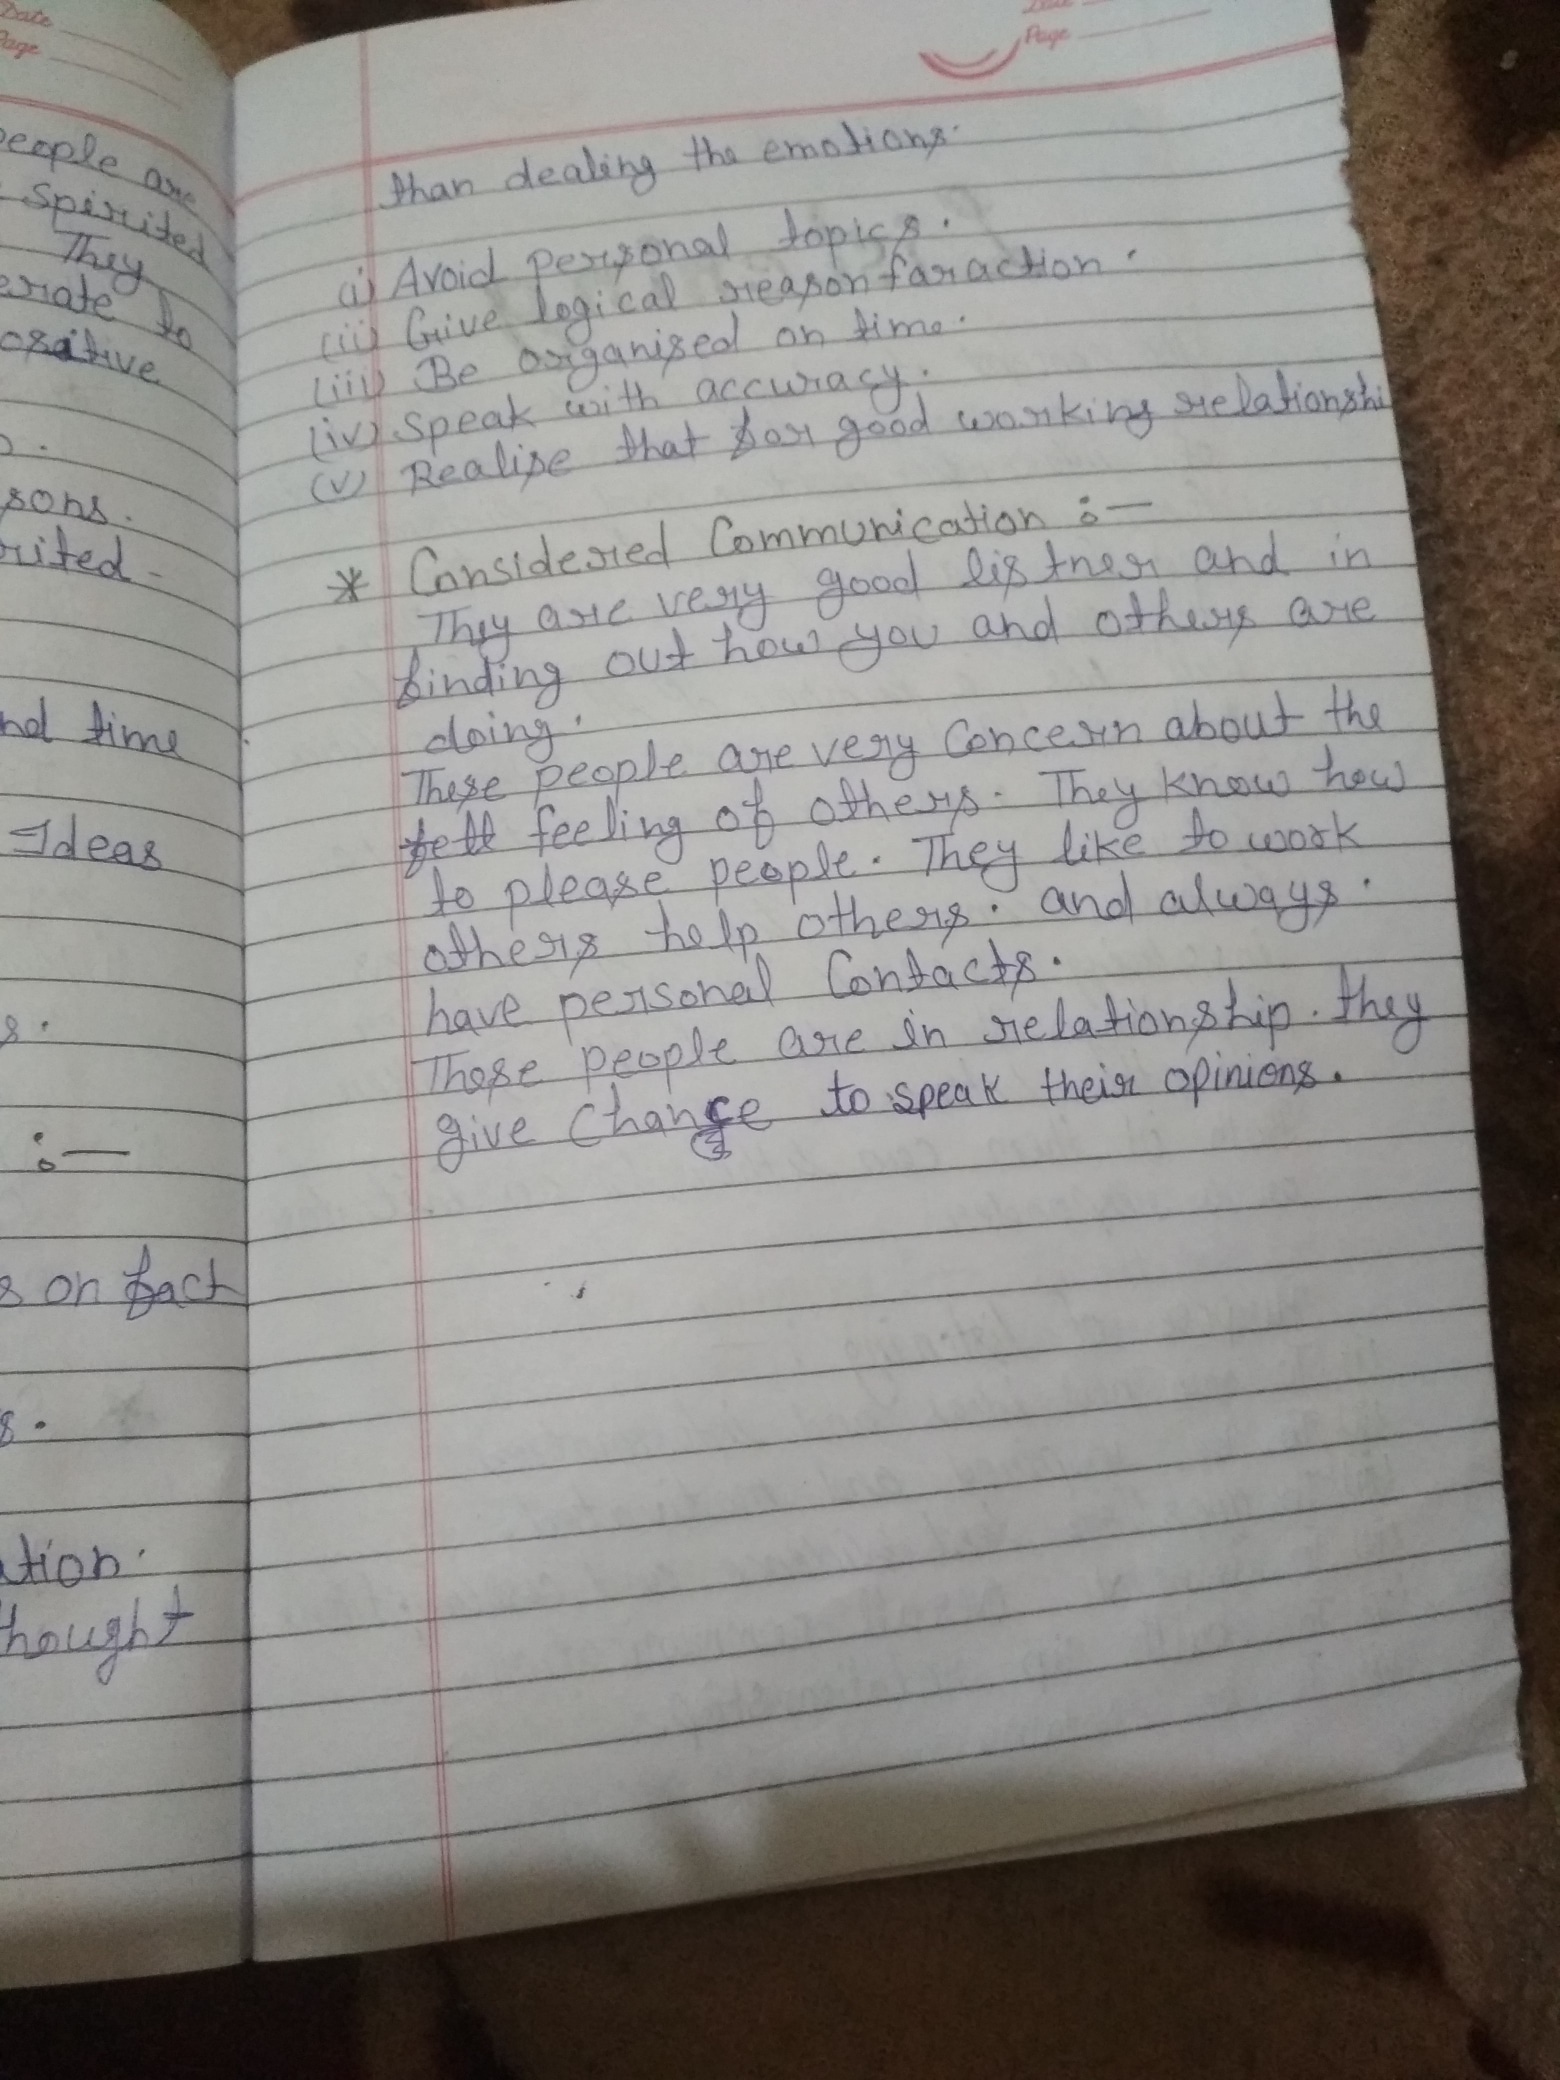 Date
Page
people are
Spirited
They
erate to
ositive
sons.
rited
nd time
Ideas
s.
:—
s on fact
s.
ation.
hought
Date
Page
than dealing the emotions.
(i) Avoid personal topics.
(ii) Give logical reason for action.
(iii) Be organised on time.
(iv) Speak with accuracy.
(v) Realise that for good working relationshi
* Considered Communication :—
They are very good listner and in
finding out how you and others are
doing.
These people are very Concern about the
feeling of others. They know how
to please people. They like to work
others help others. and always.
have personal Contacts.
These people are in relationship. they
give Chance to speak their opinions.